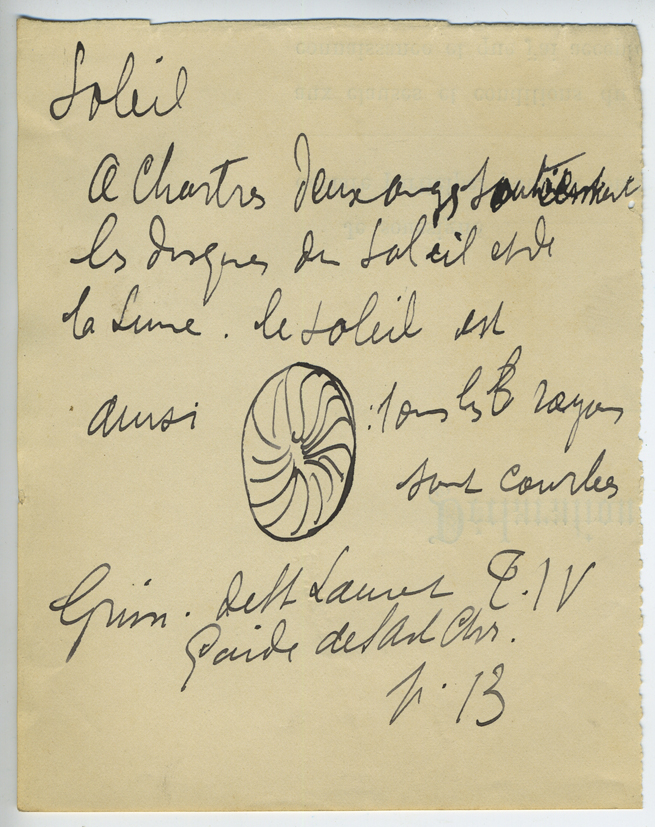 Soleil
A Chartres deux anges soutiennent
les disques du soleil et de
la Lune. le soleil est
ainsi : tous les rayons
sont courbes
Grim. de St Laurent T. IV
Guide de l'Art Chr.
p. 13